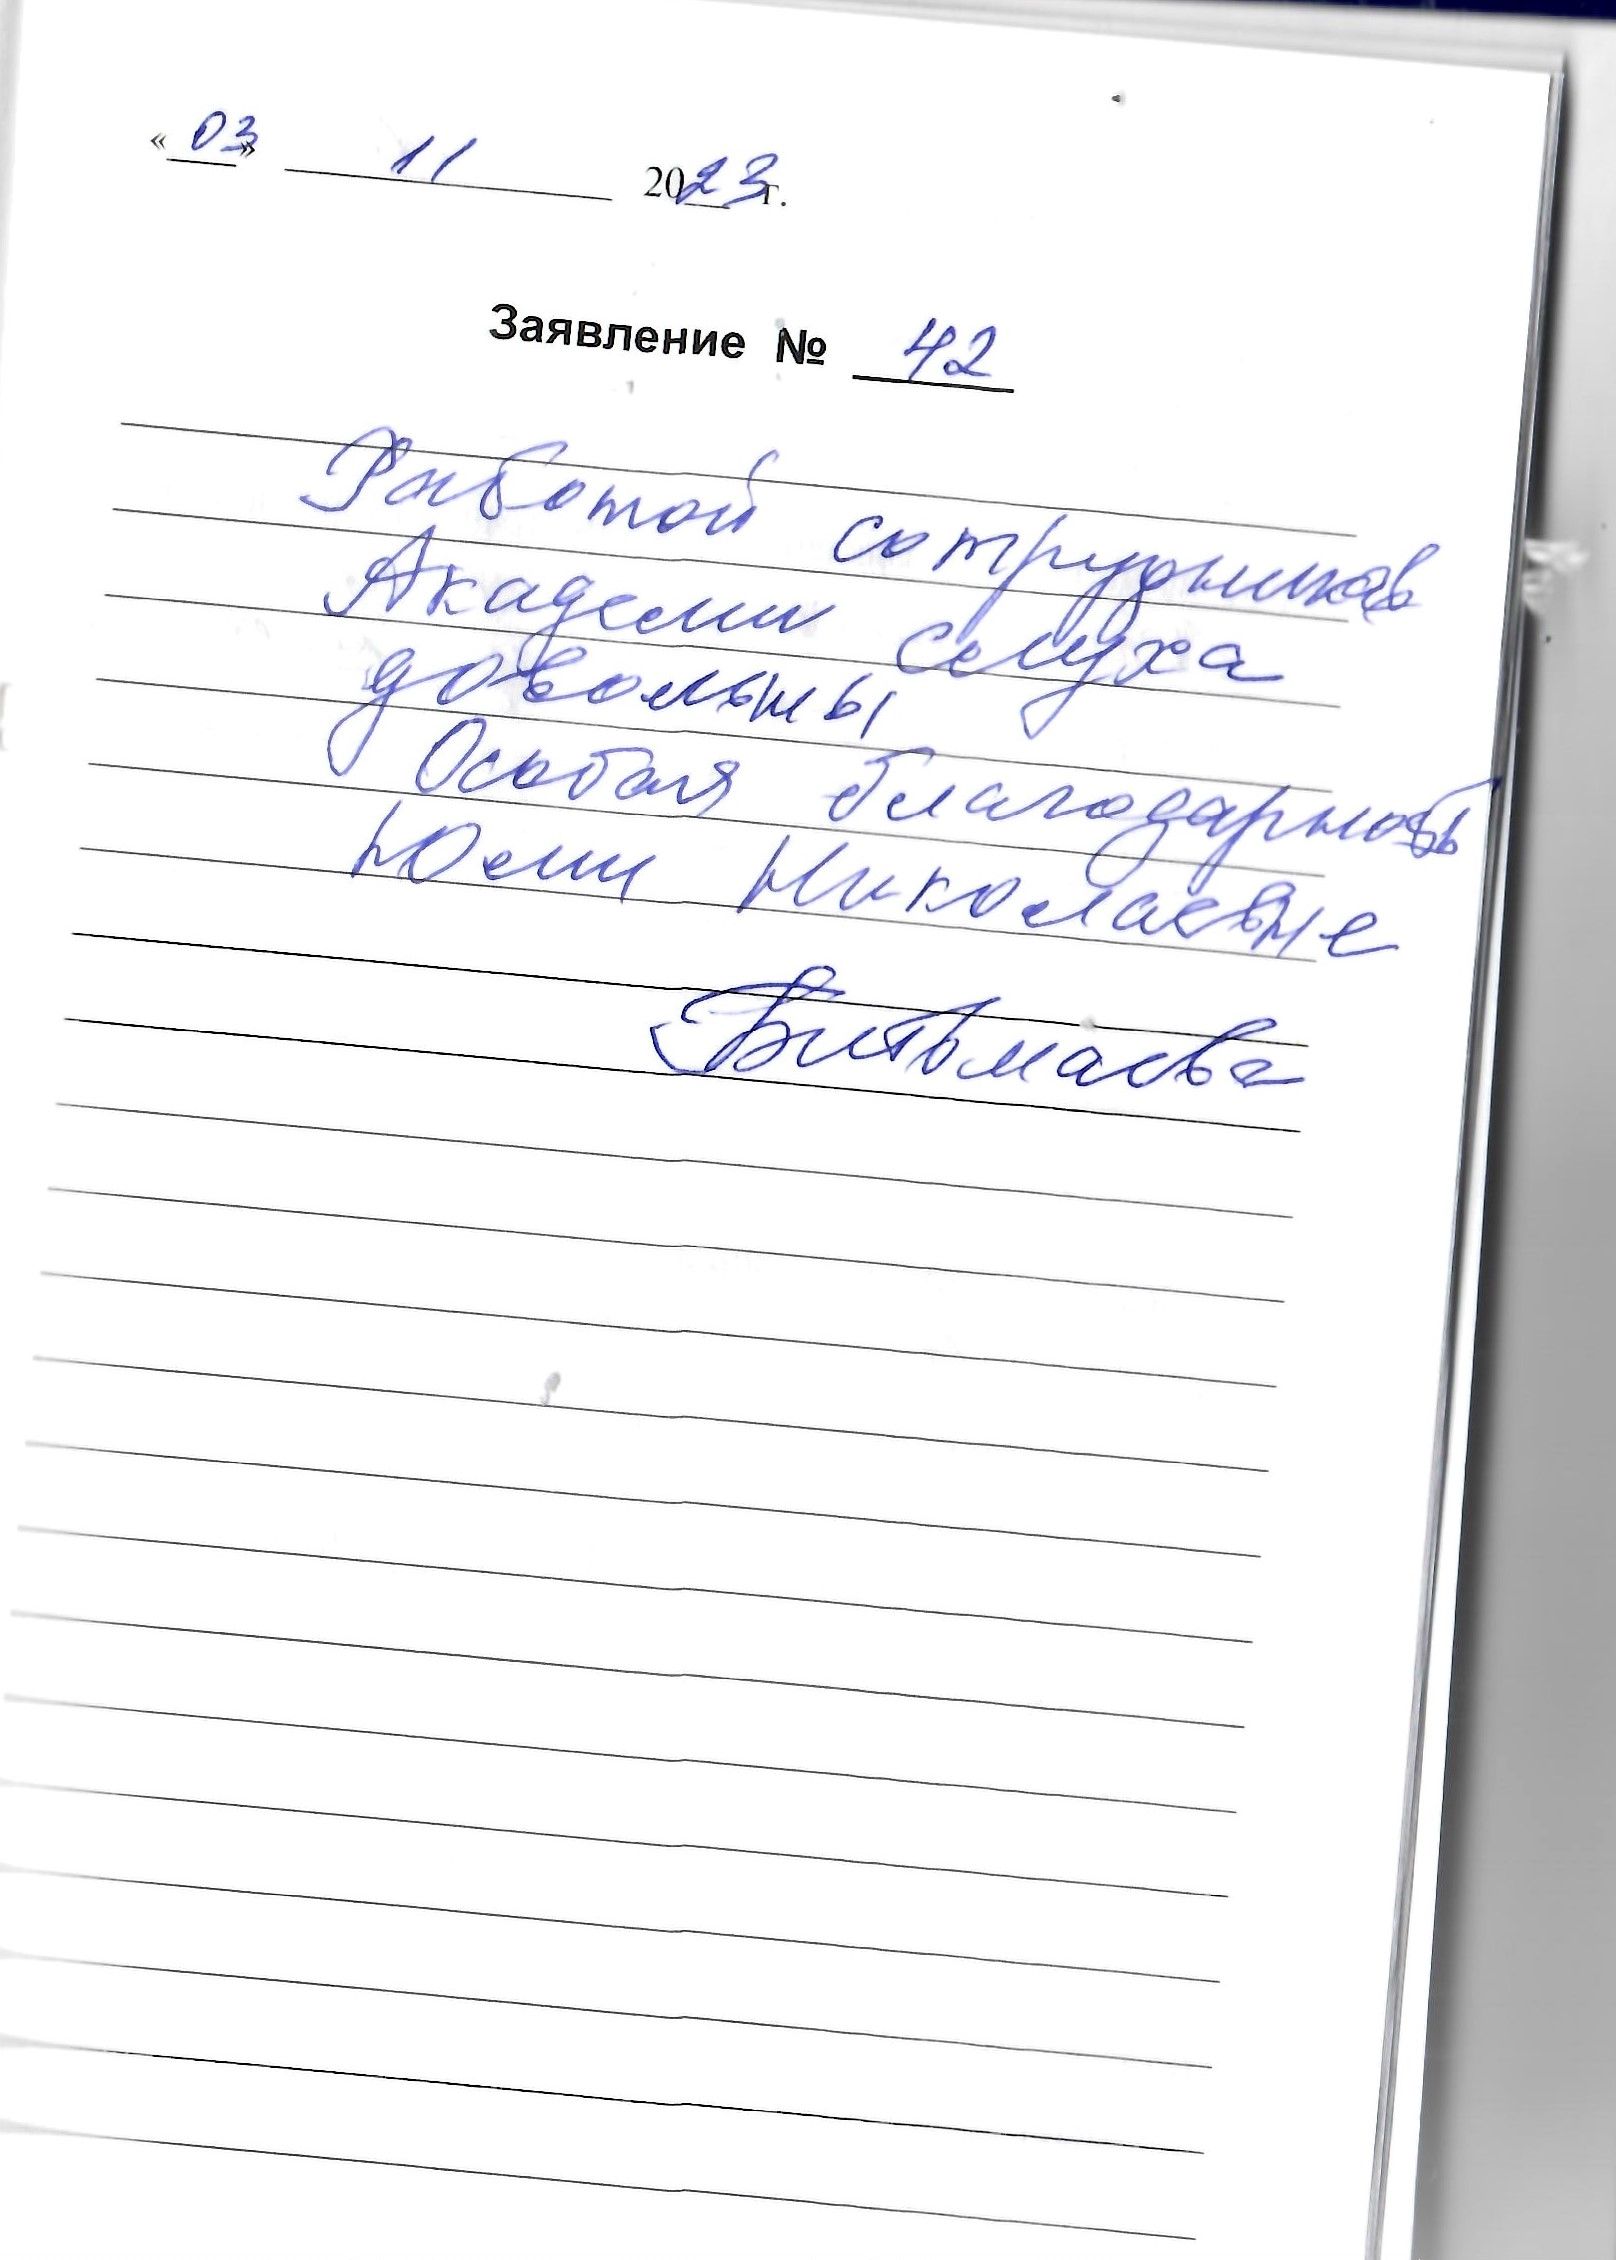 «03» 11 2023 г.
Заявление № 42
Работой сотрудников
Академии слуха
довольны
Особая благодарность
Юлии Николаевне